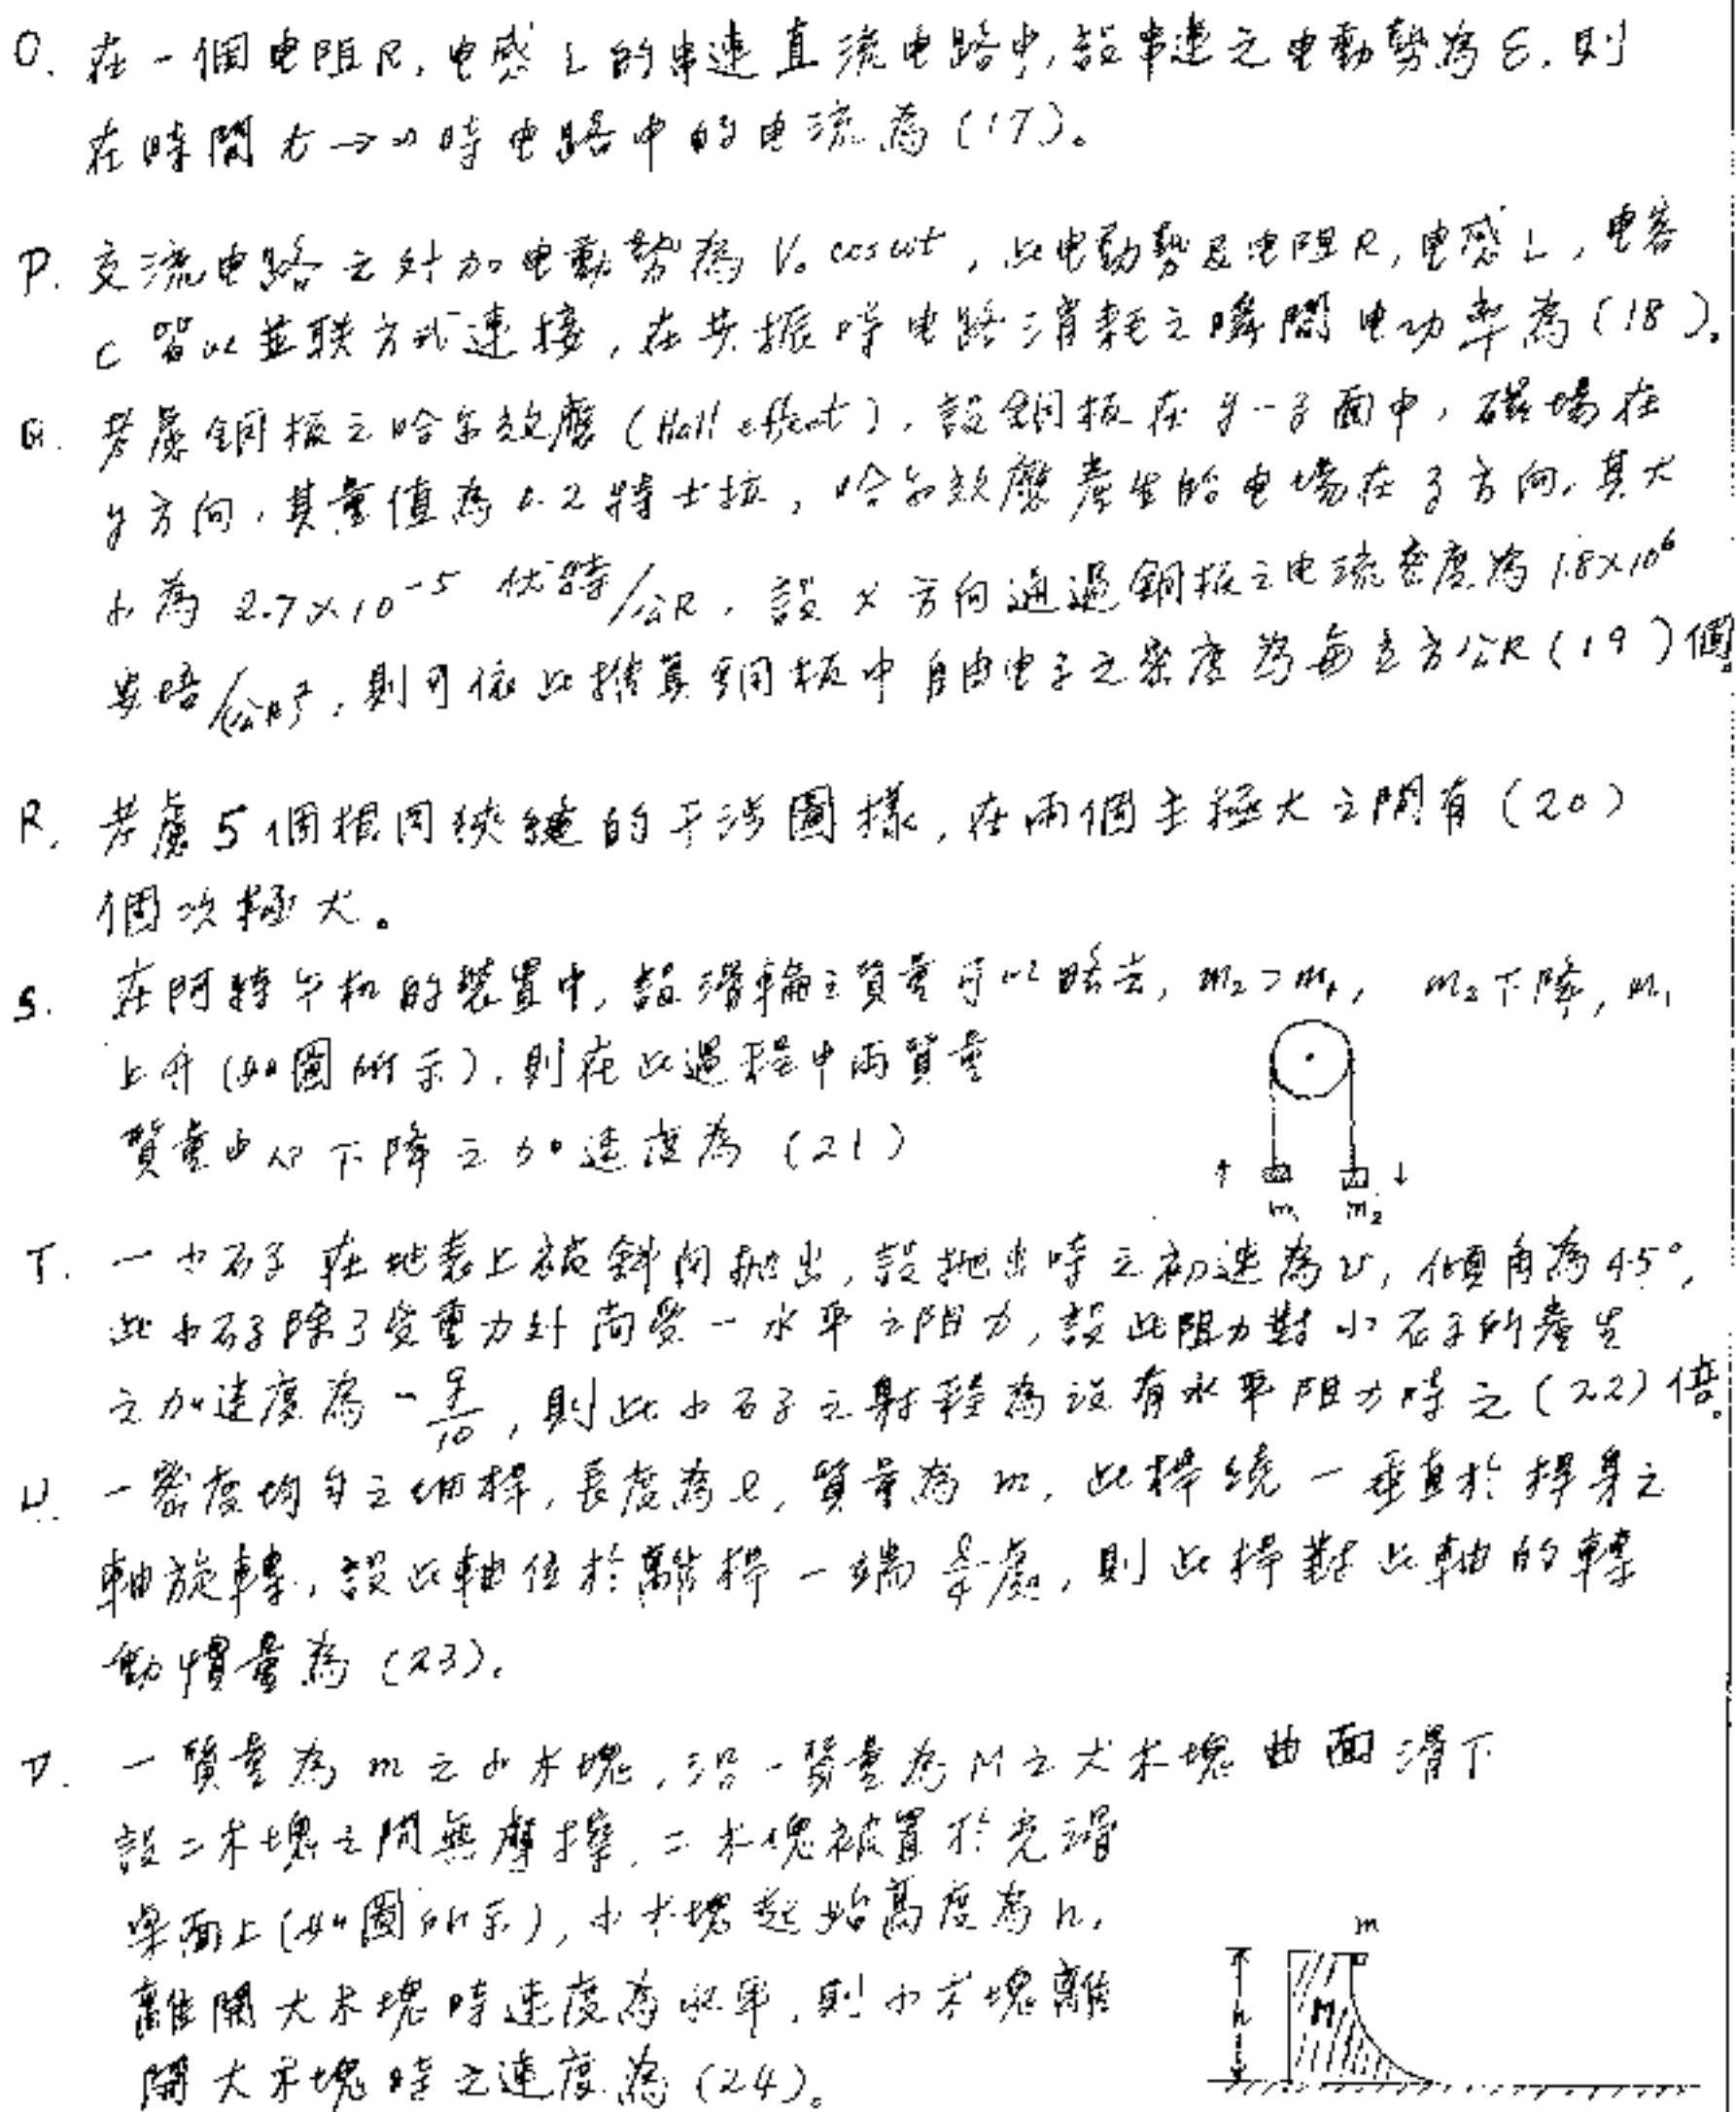 O. 在一個电阻R,电感L的串連直流电路中,設串連之电動勢為ε,則
在時間t→∞時电路中的电流為(17)。
P. 交流电路之外加电動勢為V₀ cosωt,此电動勢及电阻R,电感L,电容
C 皆以並联方式連接,在共振時电路消耗之瞬間电功率為(18)。
Q. 考慮銅板之哈尔效應(Hall effect),設銅板在x-y面中,磁場在
y方向,其量值為0.2特士拉,哈尔效應產生的电場在z方向,其大
小為2.7×10⁻⁵伏特/公尺,設x方向通過銅板之电流密度為1.8×10⁶
安培/(公尺)²,則可依此推算銅板中自由电子之密度為每立方公尺(19)個。
R. 考慮5個相同狹縫的干涉圖樣,在兩個主極大之間有(20)
個次極大。
S. 在阿特午机的裝置中,設滑輪之質量可以略去,m₂>m₁, m₂下降,m₁
上升(如圖所示),則在此過程中兩質量
質量中心下降之加速度為(21)
m₁ m₂
T. 一小石子在地表上被斜向拋出,設拋出時之初速為v,傾角為45°,
此小石子除了受重力外尚受一水平之阻力,設此阻力對小石子所產生
之加速度為-g/10,則此小石子之射程為沒有水平阻力時之(22)倍。
U. 一密度均勻之細桿,長度為ℓ,質量為m,此桿繞一垂直於桿身之
軸旋轉,設此軸位於離桿一端ℓ/4處,則此桿對此軸的轉
動慣量為(23)。
V. 一質量為m之小木塊,沿一質量為M之大木塊曲面滑下
設二木塊之間無摩擦,二木塊被置於光滑
桌面上(如圖所示),小木塊起始高度為h,
離開大木塊時速度為水平,則小木塊離
開大木塊時之速度為(24)。
m
h M